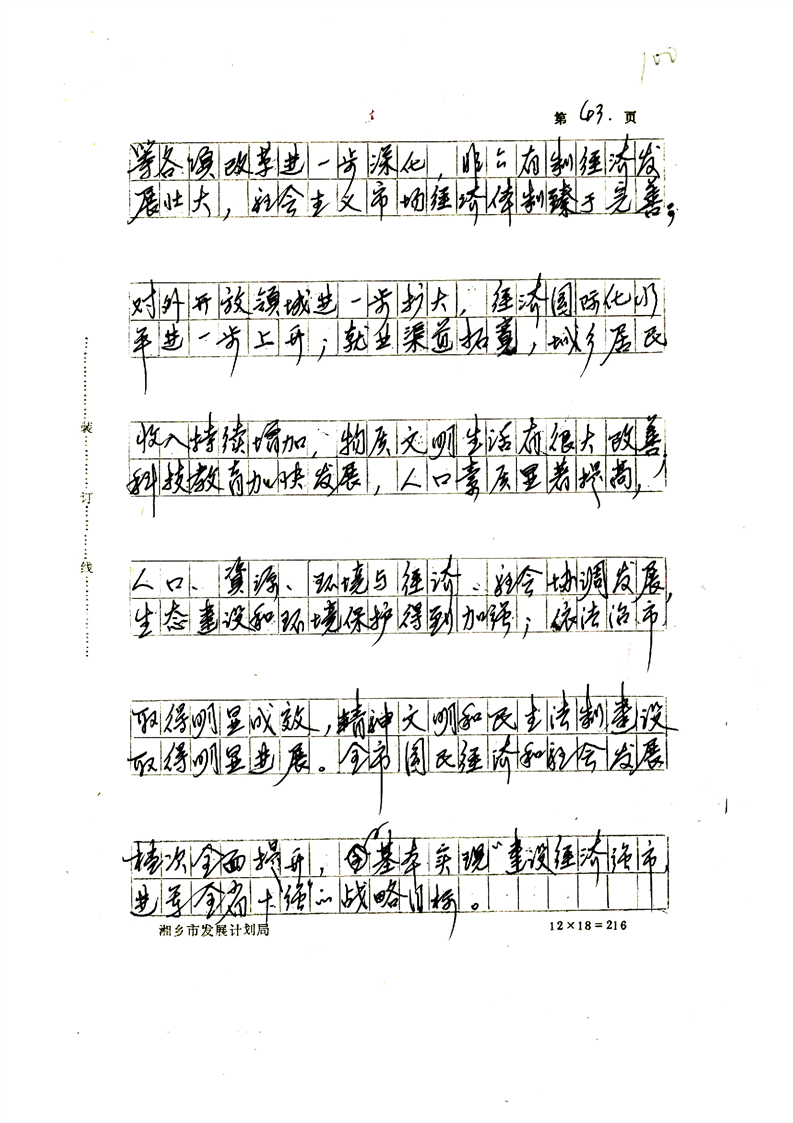 100
第 43. 页
等各项改革进一步深化，非公有制经济发
展壮大，社会主义市场经济体制臻于完善；
对外开放领域进一步扩大，经济国际化水
平进一步上升；就业渠道拓宽，城乡居民
收入持续增加，物质文明生活有很大改善；
科技教育加快发展，人口素质显著提高，
人口、资源、环境与经济、社会协调发展，
生态建设和环境保护得到加强；依法治市
取得明显成效，精神文明和民主法制建设
取得明显进展。全市国民经济和社会发展
档次全面提升，基本实现“建设经济强市，
进军全省十强”的战略目标。
装订线
湘乡市发展计划局
12×18=216